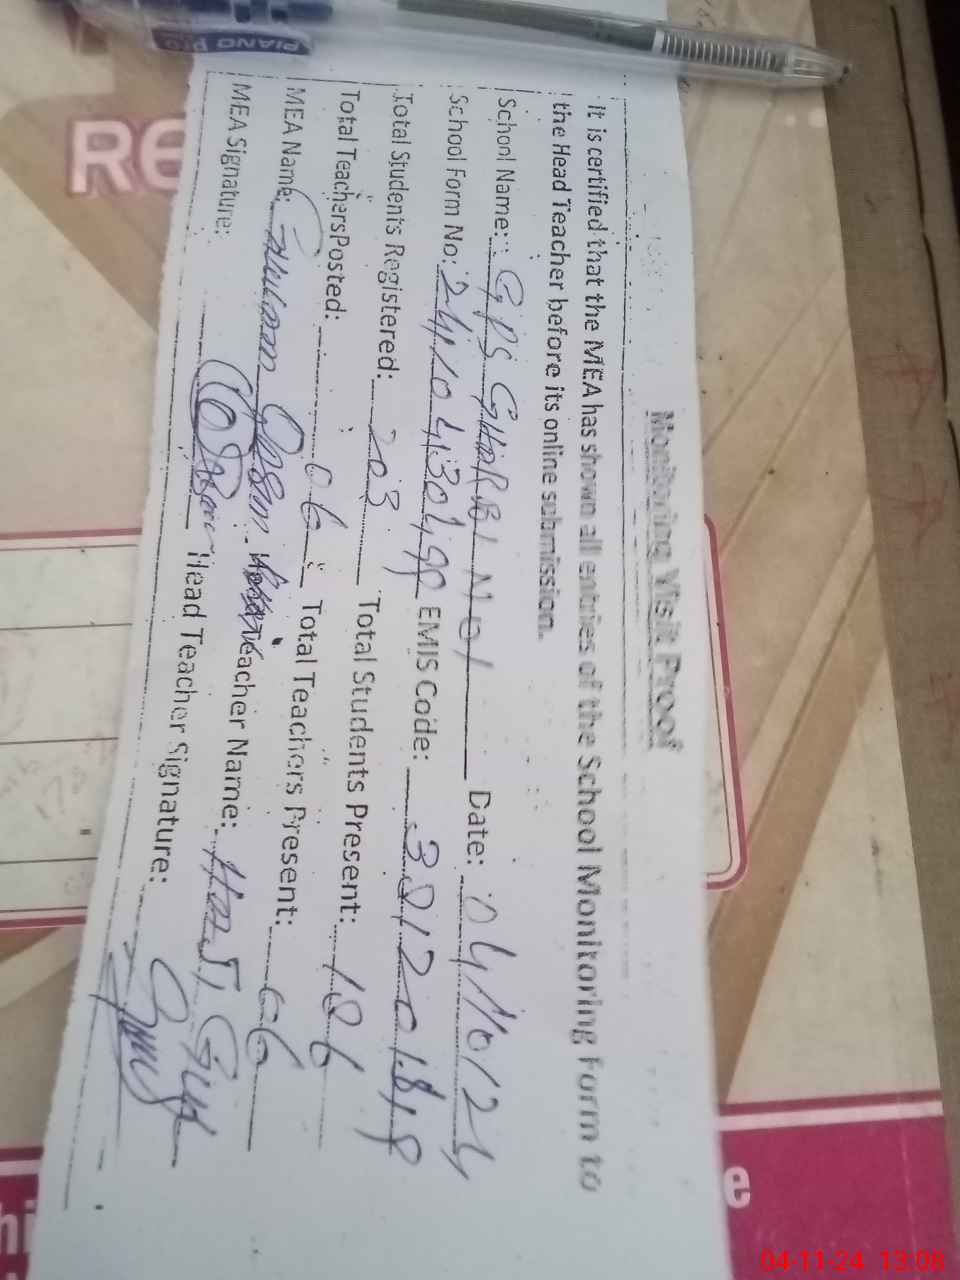 PIANO
Re
Monitoring Visit Proof
It is certified that the MEA has shown all entries of the School Monitoring Form to
the Head Teacher before its online submission.
School Name: GPS GHARBI NO1 Date: 04/10/24
School Form No: EMIS Code: 38120188
Total Students Registered: 203 Total Students Present: 186
Total Teachers Posted: 06 Total Teachers Present: 06
MEA Name: Ghulam Qasim Teacher Name:
MEA Signature: Head Teacher Signature:
04-11-24 13:08